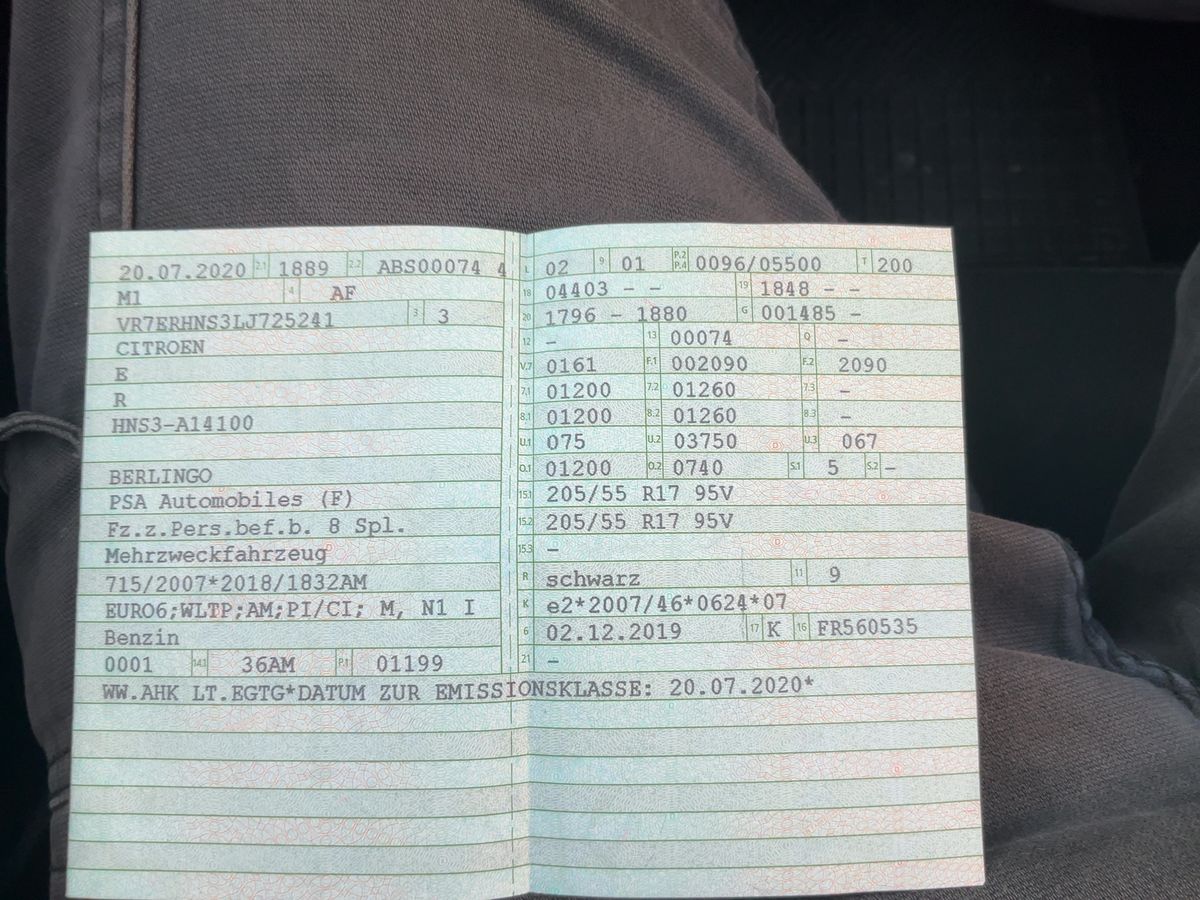 20.07.2020 2.1 1889 2.2 ABS00074 4
M1 4 AF
VR7ERHNS3LJ725241 3 3
CITROEN
E
R
HNS3-A14100
BERLINGO
PSA Automobiles (F)
Fz.z.Pers.bef.b. 8 Spl.
Mehrzweckfahrzeug
715/2007*2018/1832AM
EURO6;WLTP;AM;PI/CI; M, N1 I
Benzin
0001 14.1 36AM P.1 01199
WW.AHK LT.EGTG*DATUM ZUR EMISSIONSKLASSE: 20.07.2020*
L 02 9 01 P.2 P.4 0096/05500 T 200
18 04403 - - 19 1848 - -
20 1796 - 1880 G 001485 -
12 - 13 00074 Q -
V.7 0161 F.1 002090 F.2 2090
7.1 01200 7.2 01260 7.3 -
8.1 01200 8.2 01260 8.3 -
U.1 075 U.2 03750 U.3 067
O.1 01200 O.2 0740 S.1 5 S.2 -
15.1 205/55 R17 95V
15.2 205/55 R17 95V
15.3 -
R schwarz 11 9
K e2*2007/46*0624*07
6 02.12.2019 17 K 16 FR560535
21 -